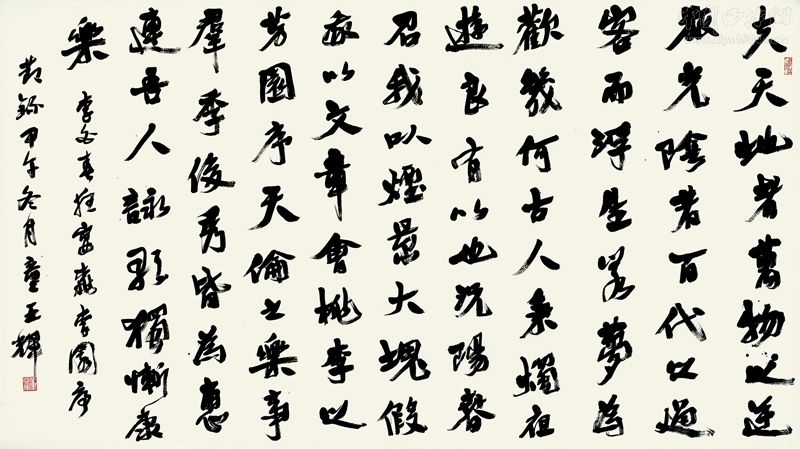 夫天地者萬物之逆
旅光陰者百代之過
客而浮生若夢為
歡幾何古人秉燭
遊良有以也況陽春
召我以煙景大塊假
我以文章會桃李之
芳園序天倫之樂事
羣季俊秀皆為惠
連吾人詠歌獨慚康
樂 李白春夜宴桃李園序
甲午冬月童